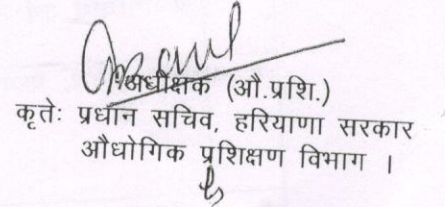 अधीक्षक (औ.प्रशि.)
कृतेः प्रधान सचिव, हरियाणा सरकार
औधोगिक प्रशिक्षण विभाग ।